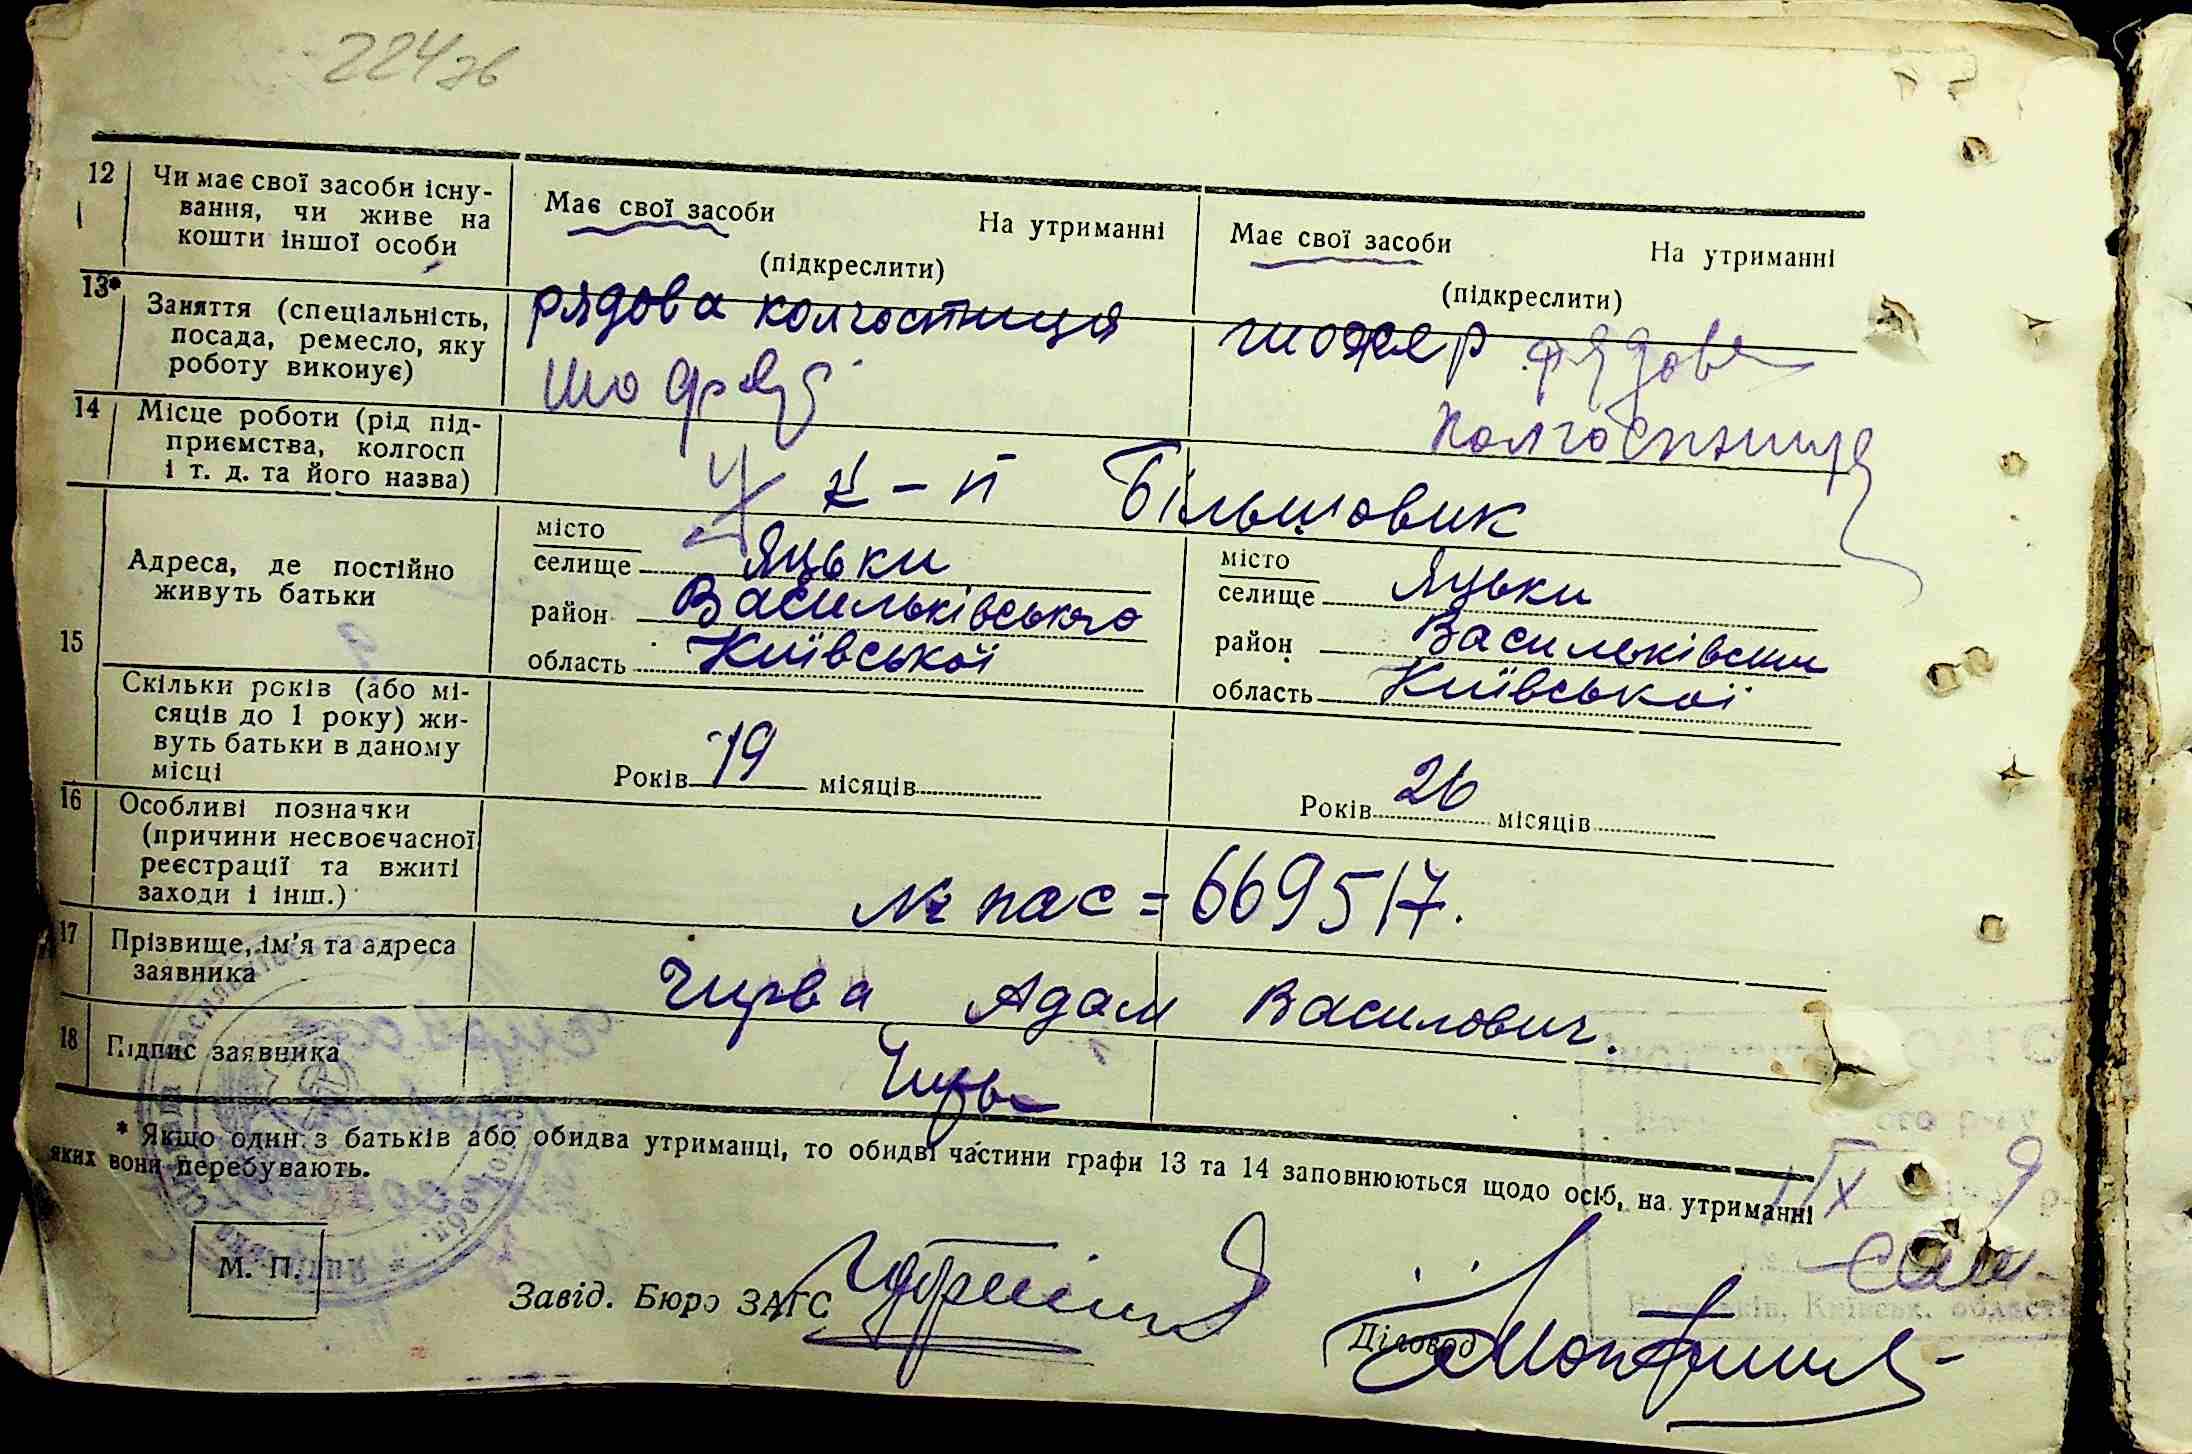 224зв
12 Чи має свої засоби існу-
вання, чи живе на
кошти іншої особи
Має свої засоби На утриманні
(підкреслити)
Має свої засоби На утриманні
(підкреслити)
13* Заняття (спеціальність,
посада, ремесло, яку
роботу виконує)
рядова колгостниця
шофер
шофер рядова
колгоспниця
14 Місце роботи (рід під-
приємства, колгосп
і т. д. та його назва)
к-п Більшовик
15 Адреса, де постійно
живуть батьки
місто
селище Яцьки
район Васильківського
область Київської
місто
селище Яцьки
район Васильківськ
область Київської
Скільки років (або мі-
сяців до 1 року) жи-
вуть батьки в даному
місці
Років 19 місяців
Років 26 місяців
16 Особливі позначки
(причини несвоєчасної
реєстрації та вжиті
заходи і інш.)
№ пас = 669517.
17 Прізвище, ім'я та адреса
заявника
Чирва Адам Василович.
18 Підпис заявника
Чирва
* Якщо один з батьків або обидва утриманці, то обидві частини графи 13 та 14 заповнюються щодо осіб, на утриманні
яких вони перебувають.
М. П.
Завід. Бюро ЗАГС
Діловод